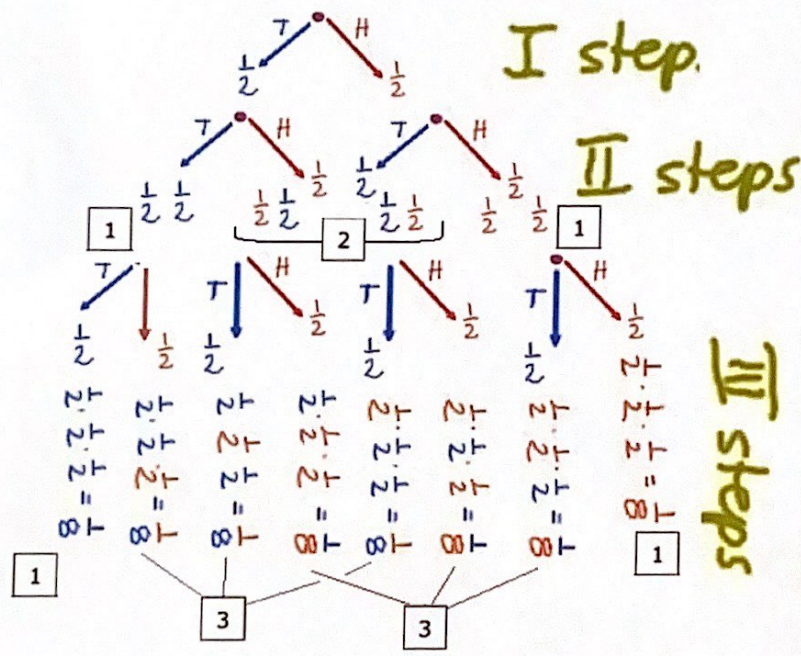 T H
1/2 1/2
I step.
T H T H
1/2 1/2 1/2 1/2 1/2 1/2 1/2 1/2 1/2 1/2
II steps
1 2 1
T T H T H T H
1/2 1/2 1/2 1/2 1/2 1/2 1/2 1/2
III steps
1/2 · 1/2 · 1/2 = 1/8
1/2 · 1/2 · 1/2 = 1/8
1/2 1/2 1/2 = 1/8
1/2 · 1/2 · 1/2 = 1/8
1/2 · 1/2 · 1/2 = 1/8
1/2 · 1/2 · 1/2 = 1/8
1/2 · 1/2 · 1/2 = 1/8
1/2 · 1/2 · 1/2 = 1/8
1 3 3 1